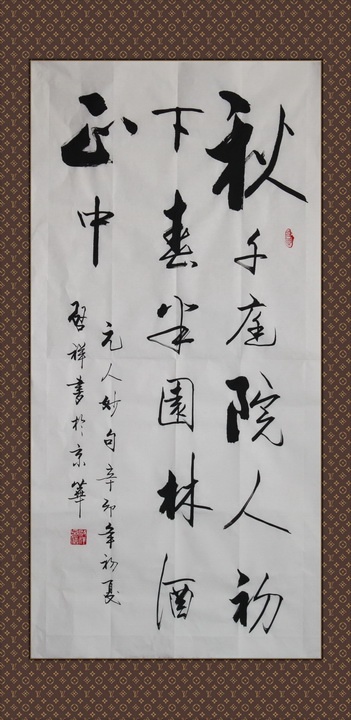 秋千庭院人初
下春半園林酒
正中
元人妙句辛卯年初夏
啓祥書於京華